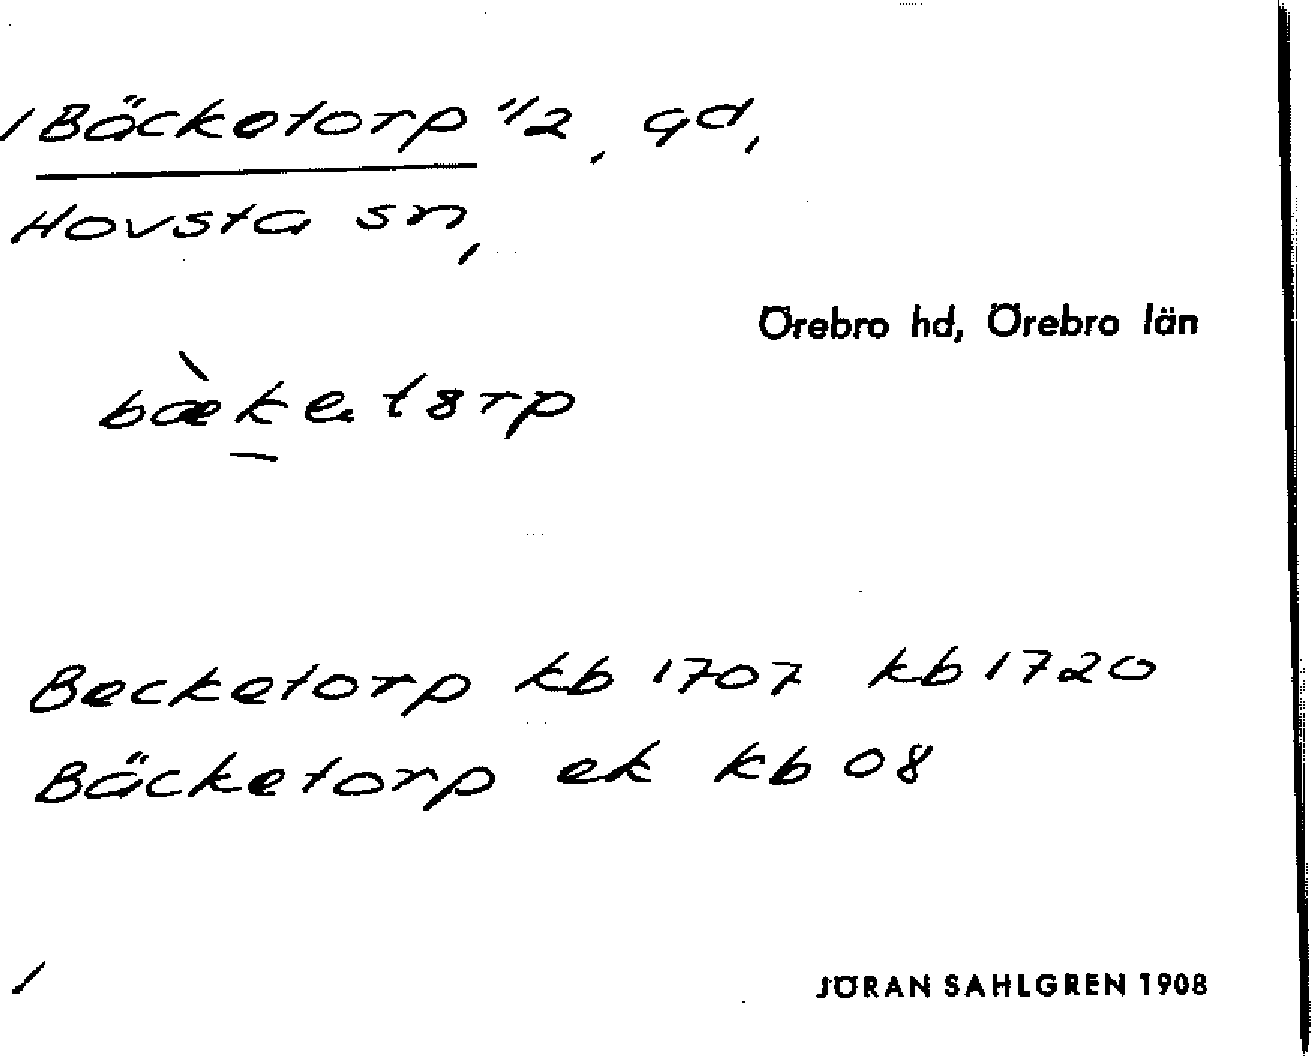 Bäcketorp 1/2, gd,
Hovsta sn,
Örebro hd, Örebro län
bæ̀ke tȣrp
Becketorp kb 1707 kb 1720
Bäcketorp ek kb 08
JÖRAN SAHLGREN 1908